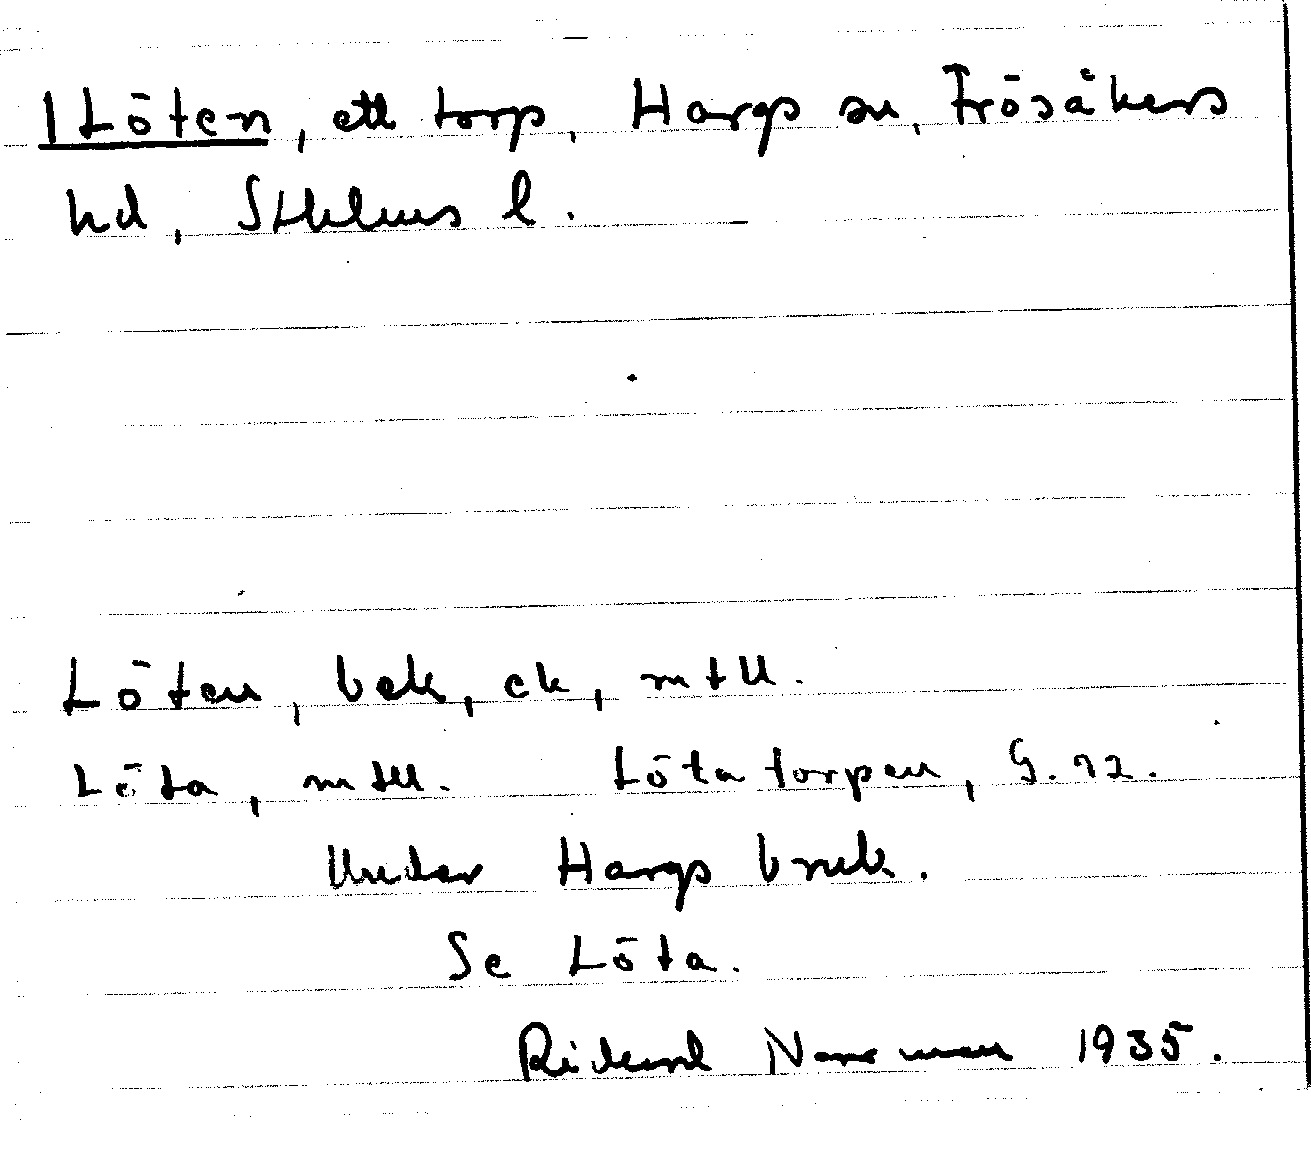 1 Löten, ett torp, Hargs sn, Frösåkers
hd, Sthlms l.
Löten, bek, ek, mtll.
Löta, mtll. Löta torpen, G.22.
Under Hargs bruk.
Se Löta.
Rickard Norrman 1935.